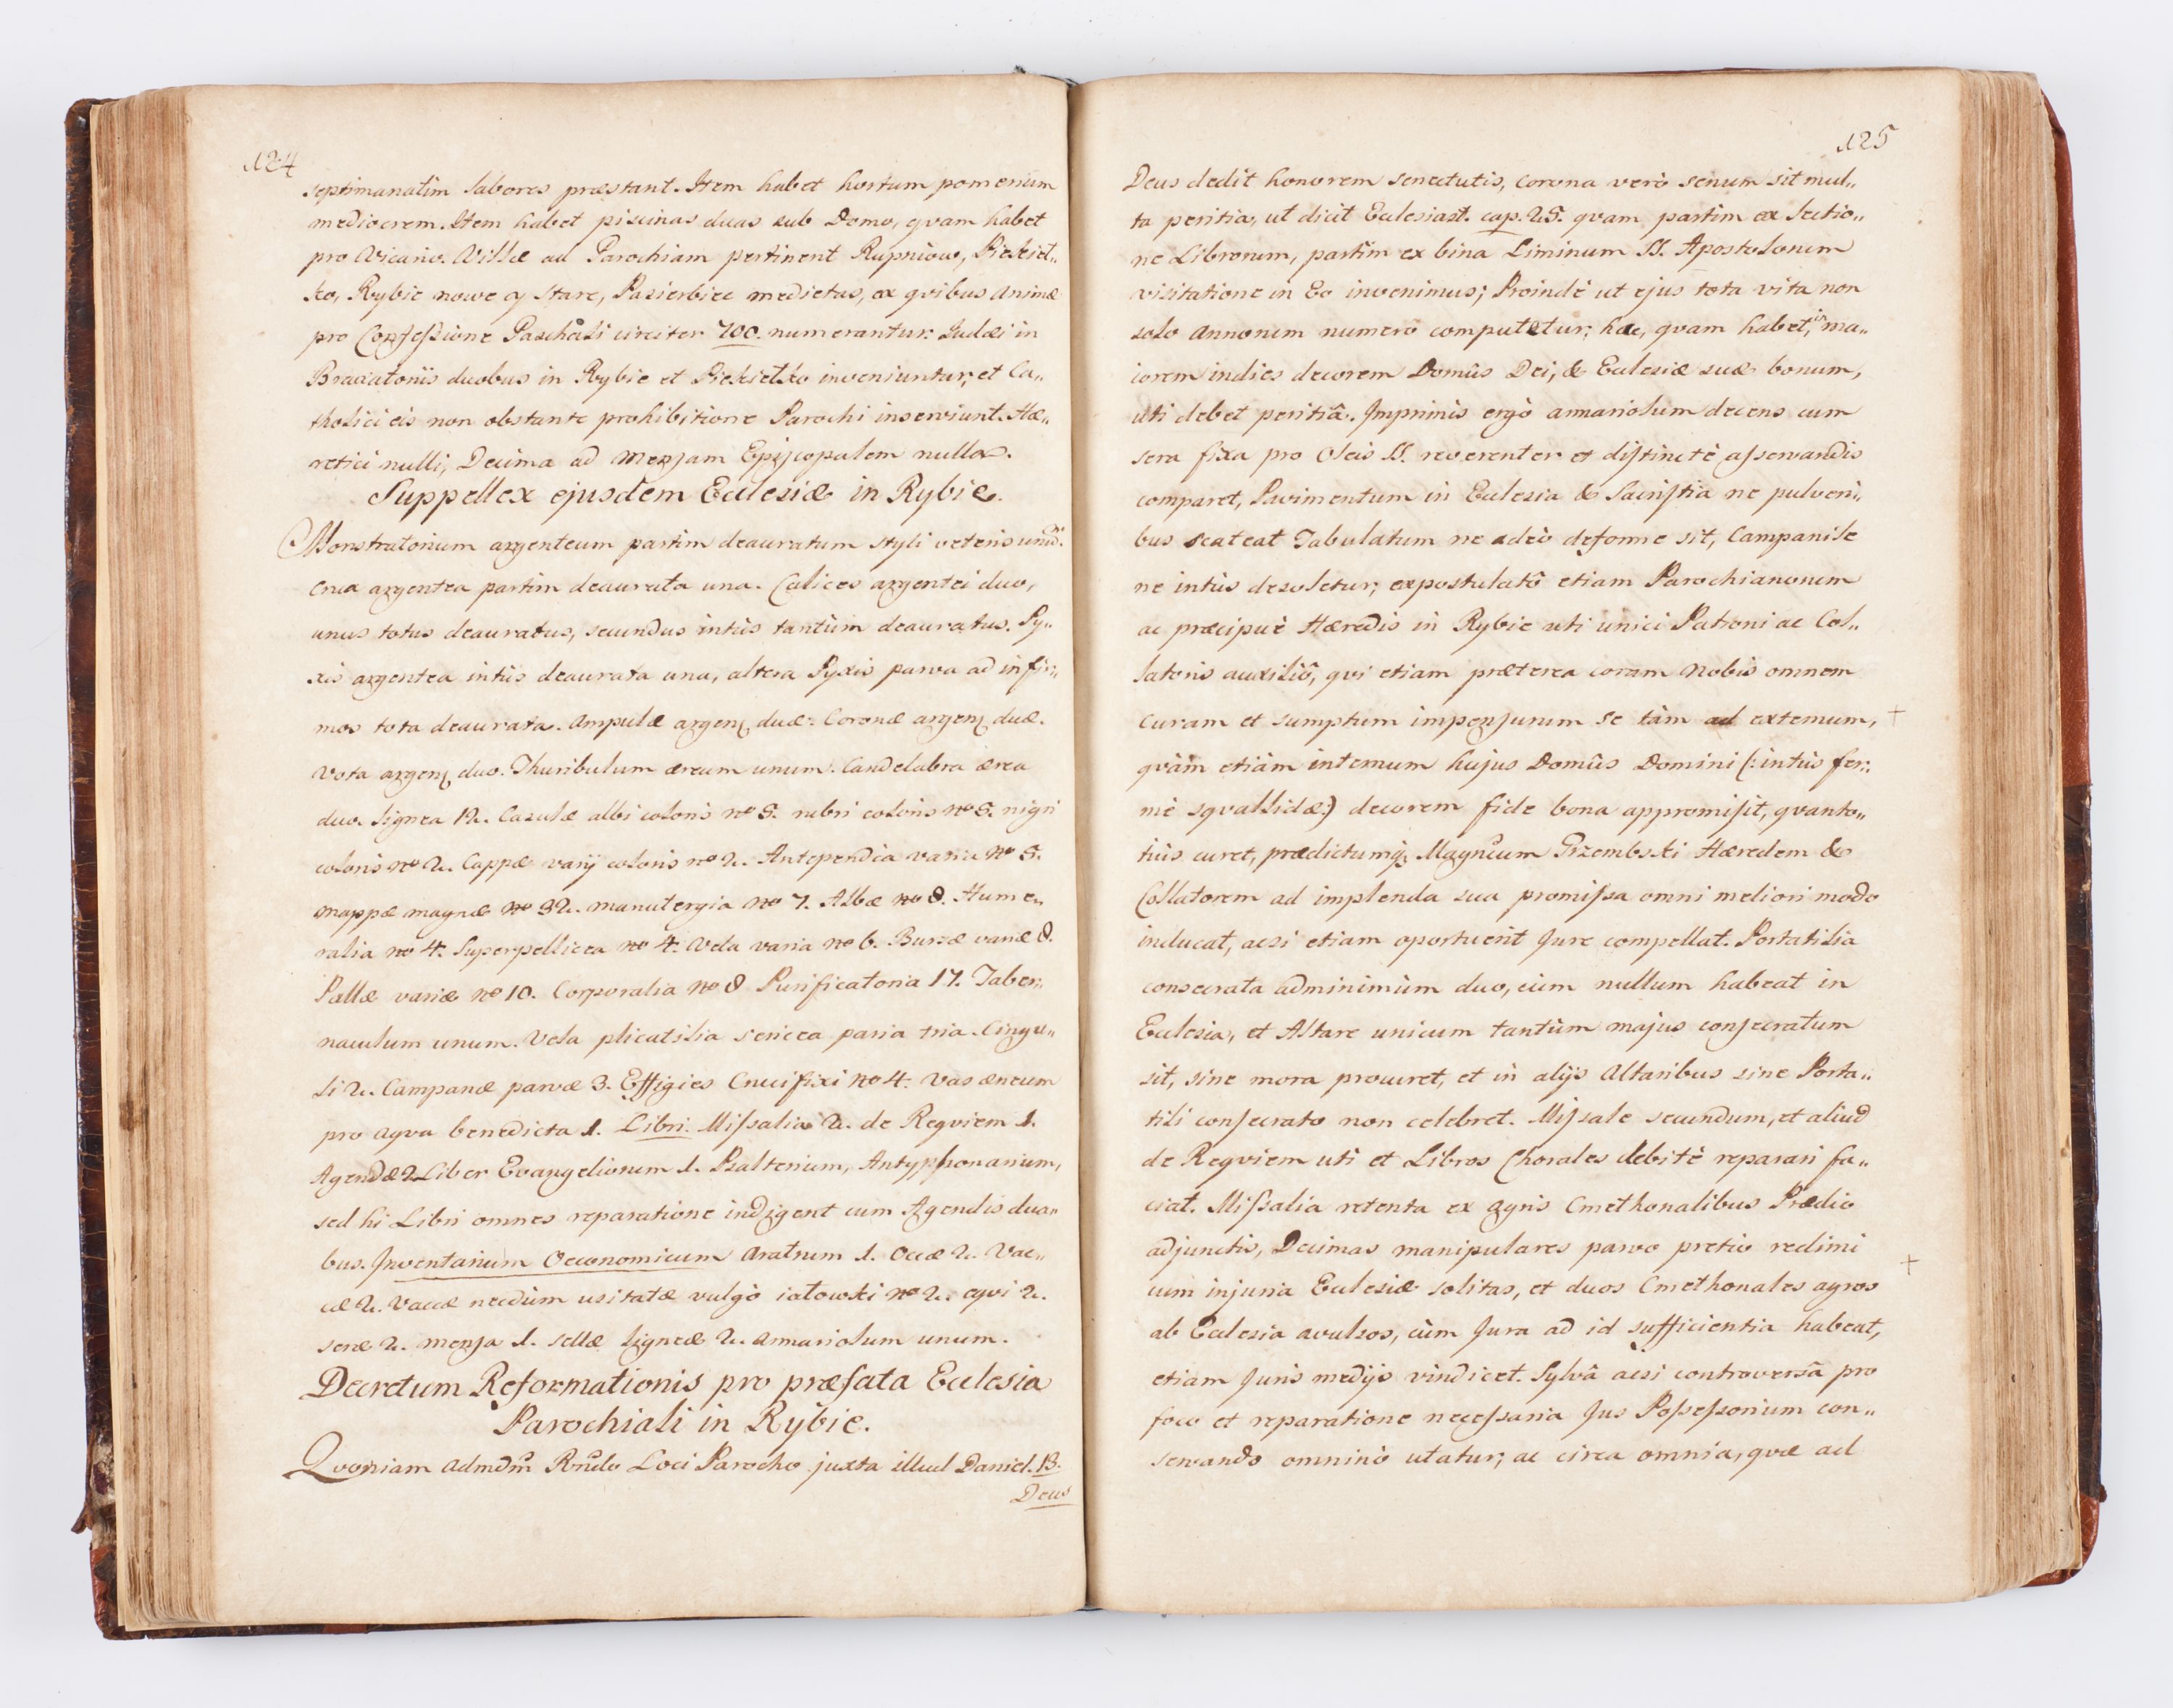 124
septimanatim labores præstant. Item habet hortum pomerium
mediocrem. Item habet piscinas duas sub Domo, qvam habet
pro Vicario. Villæ ad Parochiam pertinent Rupniow, Piekieł„
ko, Rybie nowe y Stare, Pasierbiec medietas, ex qvibus Animæ
pro Confeſsione Paschali circiter 700. numerantur: Judæi in
Braxatoriis duobus in Rybie et Piekiełko inveniuntur, et Ca„
tholici eis non obstante prohibitione Parochi inserviunt. Hæ„
retici nulli, Decima ad Menſam Epiſcopalem nulla.
Suppellex ejusdem Ecclesiæ in Rybie.
Monstratorium argenteum partim deauratum styli veteris unũ.
Crux argentea partim deaurata una. Calices argentei duo,
unus totus deauratus, secundus intùs tantùm deauratus. Py„
xis argentea intùs deaurata una, altera Pyxis parva ad infir„
mos tota deaurata. Ampulæ argen. duæ. Coronæ argen. duæ.
Vota argen. duo. Thuribulum æreum unum. Candelabra ærea
duo. lignea 12. Casulæ albi coloris nº 5. rubri coloris nº 5. nigri
coloris nº 2. Cappæ varij coloris nº 2. Antependia varia nº 5.
mappæ magnæ nº 32. manutergia nº 7. Albæ nº 8. Hume„
ralia nº 4. Superpellicea nº 4. Vela varia nº 6. Bursæ variæ 8.
Pallæ variæ nº 10. Corporalia nº 8 Purificatoria 17. Taber„
naculum unum. Vela plicatilia sericea paria tria. Cingu„
li 2. Campanæ parvæ 3. Effigies Crucifixi nº 4. Vas æneum
pro aqva benedicta 1. Libri. Miſsalia 2. de Reqviem 1.
Agendæ 2 Liber Evangeliorum 1. Psalterium, Antypphonarium,
sed hi Libri omnes reparatione indigent cum Agendis dua„
bus. Inventarium Oeconomicum Aratrum 1. Occæ 2. Vac„
cæ 2. Vaccæ necdùm usitatæ vulgò iałowki nº 2. eqvi 2.
seræ 2. menſa 1. sellæ ligneæ 2. Armariolum unum.
Decretum Reformationis pro præfata Ecclesia
Parochiali in Rybie.
Qvoniam Admdm̃ Rñdo Loci Parocho juxta illud Daniel. 13.
Deus
125
Deus dedit honorem senectutis, Corona verò senum sit mul„
ta peritia, ut dicit Ecclesiast. cap. 25. qvam partim ex lectio„
ne Librorum, partim ex bina Liminum SS. Apostolorum
visitatione in Eo invenimus; Proindè ut ejus tota vita non
solo Annorum numero computetur, hac, qvam habet, in ma„
iorem indies decorem Domûs Dei, & Ecclesiæ suæ bonum,
uti debet peritiâ. Imprimis ergò armariolum decens cum
sera fixa pro Oleis SS. reverenter et diſtinctè aſservandis
comparet, Pavimentum in Ecclesia & Sacriſtia ne pulveri„
bus scateat Tabulatum ne adeò deforme sit, Campanile
ne intùs desoletur, expostulatô etiam Parochianorum
ac præcipuè Hæredis in Rybie uti unici Patroni ac Col„
latoris auxiliô, qvi etiam præterea coram Nobis omnem
curam et sumptum impenſurum se tàm ad externum, +
qvàm etiàm internum hujus Domûs Domini (: intùs fer„
mè sqvallidæ:) decorem fide bona appromiſit, qvanto„
tiùs curet, prædictumq; Magnĩcum Przembski Hæredem &
Collatorem ad implenda sua promiſsa omni meliori modo
inducat, acsi etiam oportuerit Jure compellat. Portatilia
consecrata adminimùm duo, cùm nullum habeat in
Ecclesia, et Altare unicum tantùm majus conſecratum
sit, sine mora procuret, et in alijs Altaribus sine Porta„
tili conſecrato non celebret. Miſsale secundum, et aliud
de Reqviem uti et Libros Chorales debitè reparari fa„
ciat. Miſsalia retenta ex agris Cmethonalibus Prædio
adjunctis, Decimas manipulares parvo pretio redimi
cum injuria Ecclesiæ solitas, et duos Cmethonales agros +
ab Ecclesia avulsos, cùm Jura ad id sufficientia habeat,
etiam Juris medijs vindicet. Sylvâ acsi controversâ pro
foco et reparatione neceſsaria Jus Poſseſsorium con„
servando omninò utatur; ac circa omnia, qvæ ad